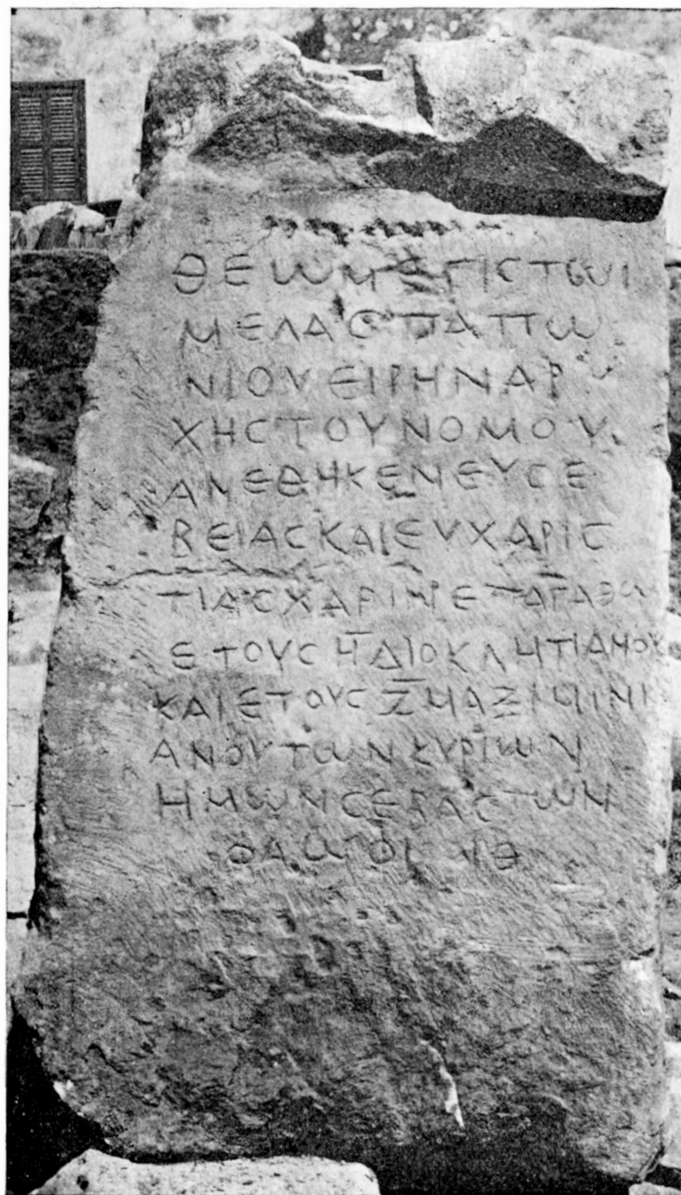 ΘΕΩΜΕΓΙСΤΩΙ
ΜΕΛΑСΠΑΠΠΩ
ΝΙΟΥΕΙΡΗΝΑΡ
ΧΗСΤΟΥΝΟΜΟΥ
ΑΝΕΘΗΚΕΝΕΥСΕ
ΒΕΙΑСΚΑΙΕΥΧΑΡΙС
ΤΙΑСΧΑΡΙΝΕΠΑΓΑΘΩ
ΕΤΟΥСΗ̅ΔΙΟΚΛΗΤΙΑΝΟΥ
ΚΑΙΕΤΟΥСΖ̅ΜΑΞΙΜΙΝΙ
ΑΝΟΥΤΩΝΚΥΡΙΩΝ
ΗΜΩΝСΕΒΑСΤΩΝ
ΙΘ